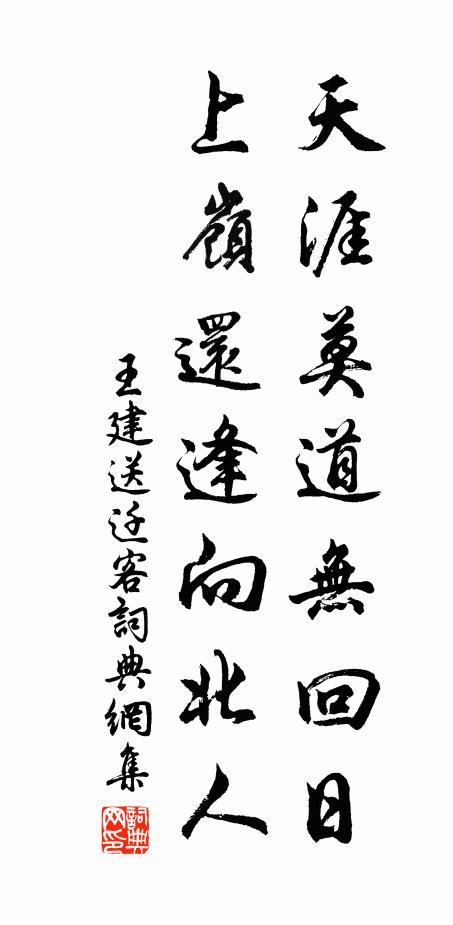 天涯莫道無回日
上嶺還逢向北人
王建送迁客詞典網集
詞典网印